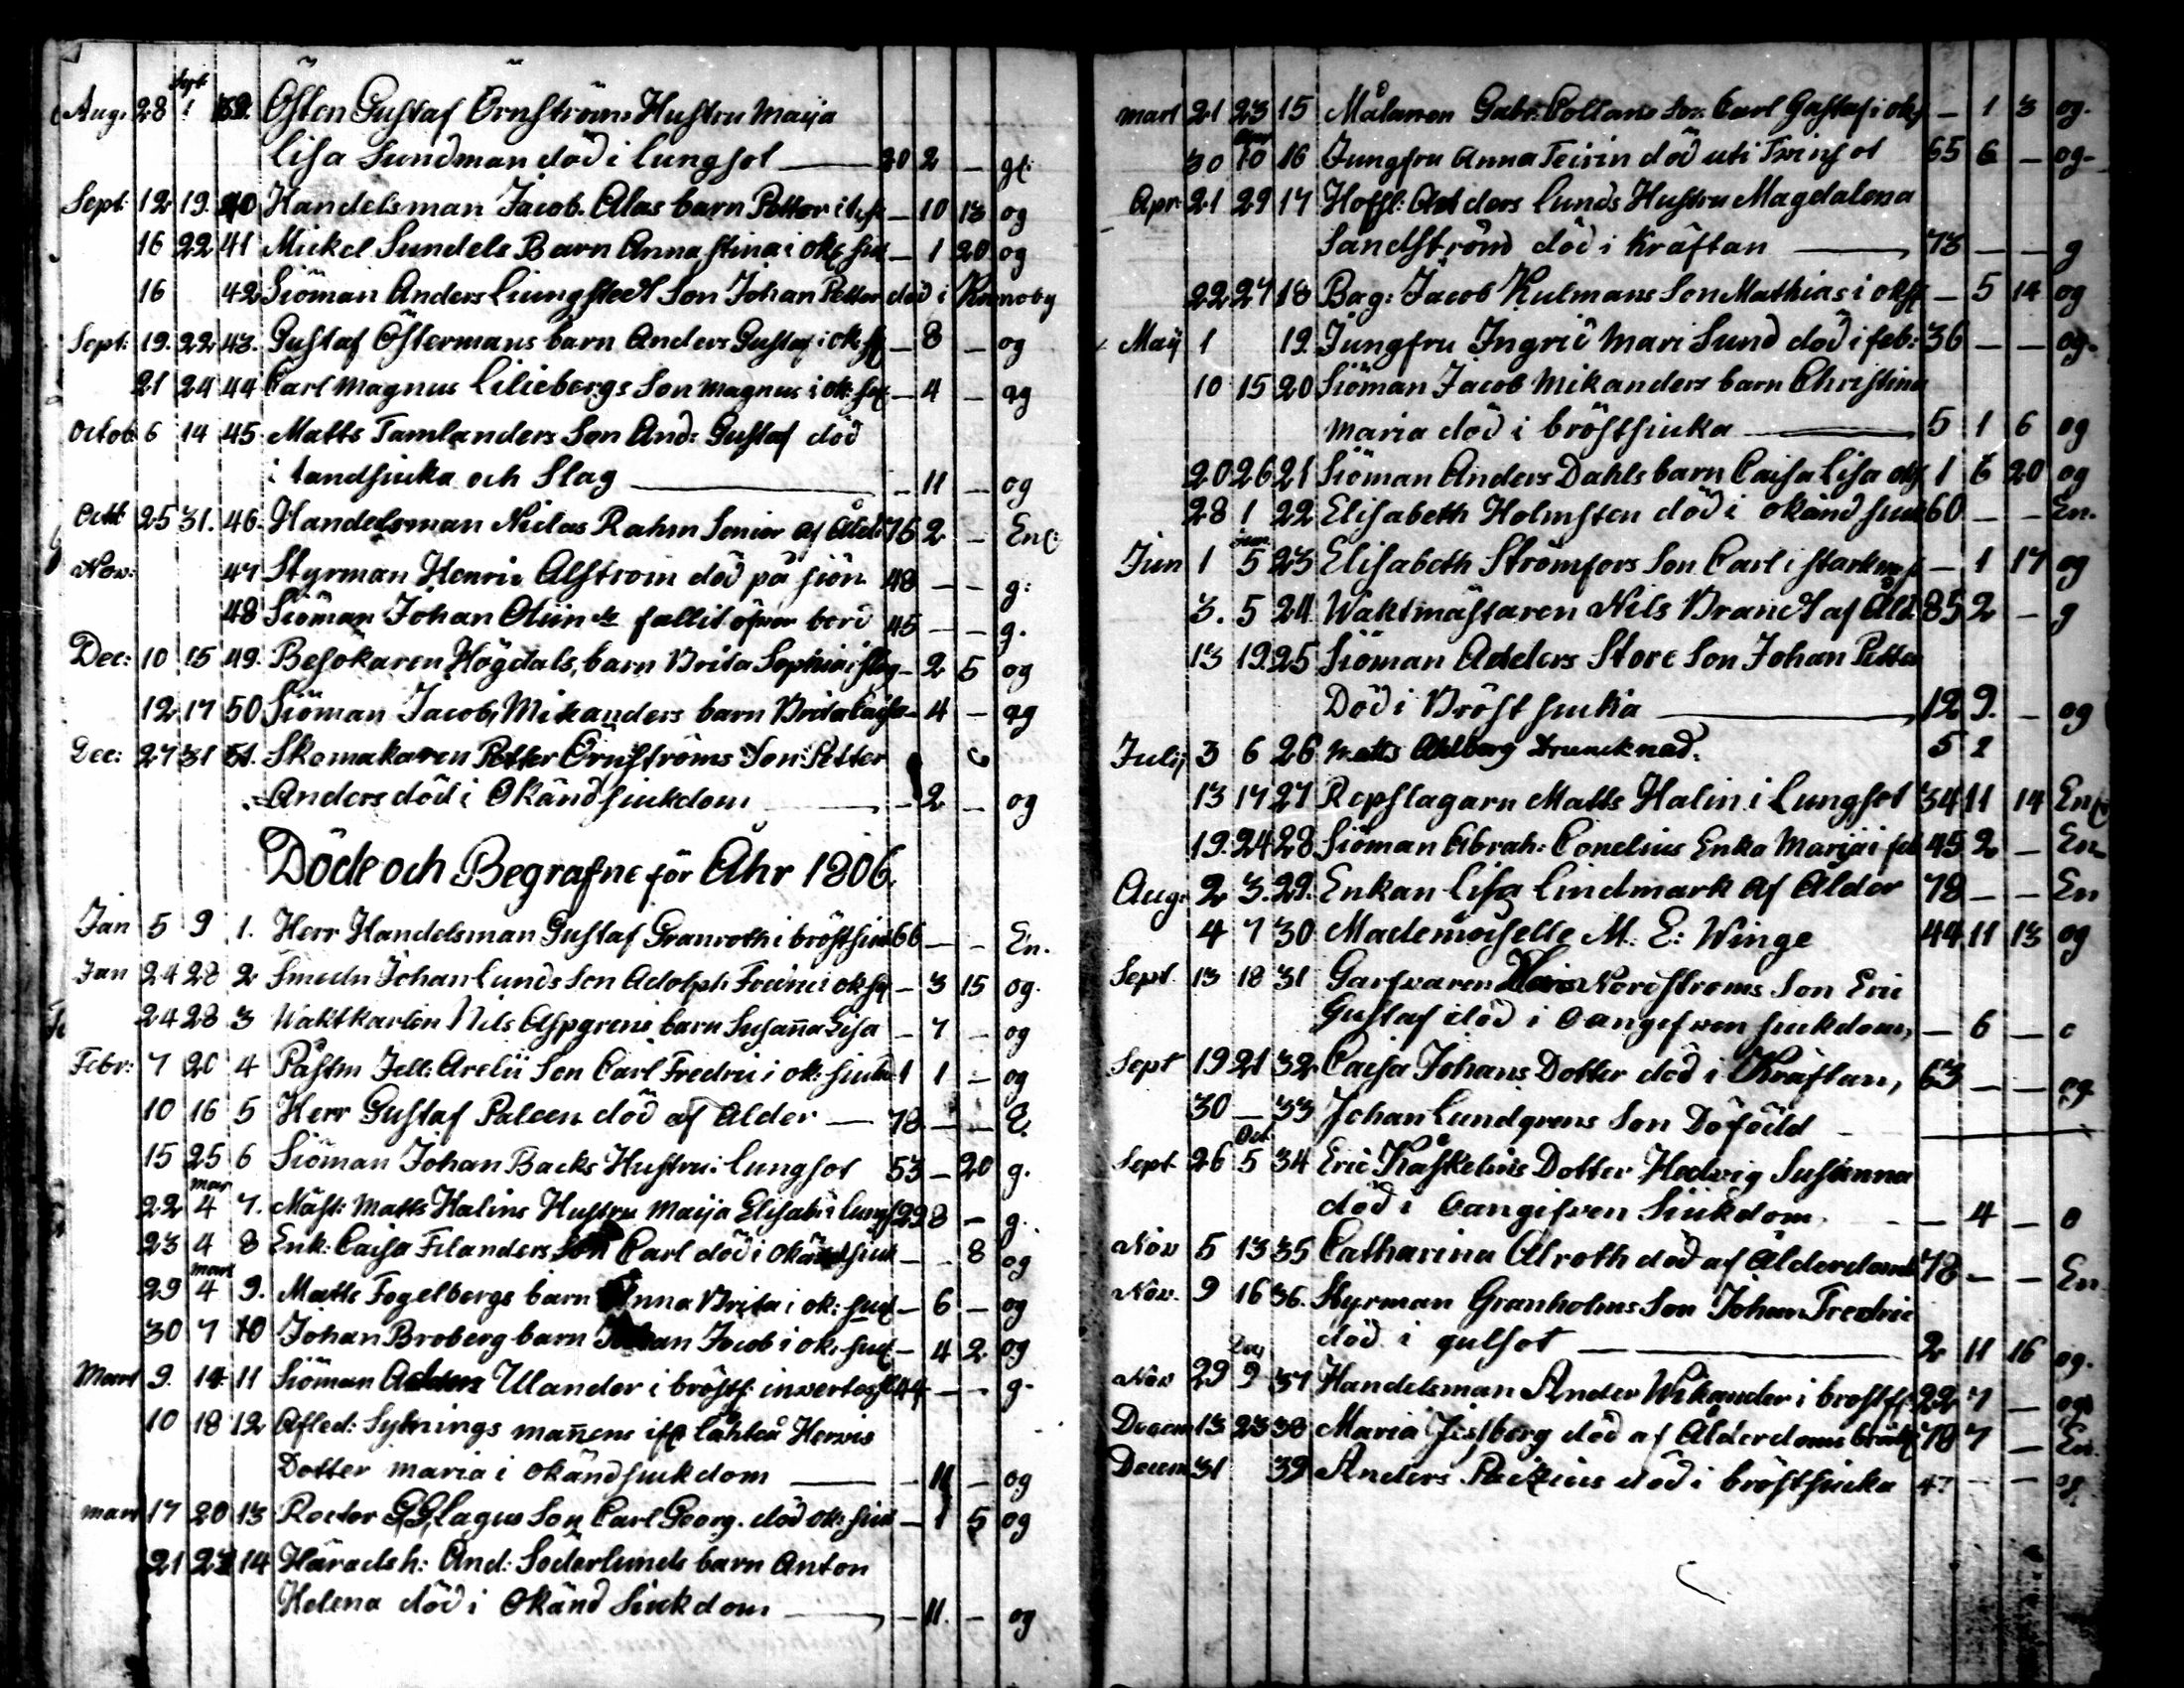 Sept
Aug. 28 1 39. Östen Gustaf Örnströms Hustru Maija
Lisa Sundman död i lungsot — 20 2 — gt:
Sept: 12 19. 40 Handelsman Jacob Alas barn Petter — 10 13 og
16 22 41 Mickel Sundels Barn Anna Stina i ok: — 1 20 og
16 42 Siöman Anders Liungstedt Son Johan Petter död i
Sept: 19. 22 43. Gustaf Östermans barn Anders Gustaf i ok: — 8 — og
21 24 44 Carl Magnus Liliebergs Son Magnus i ok: — 4 — og
Octob 6 14 45 Matts Tamlanders Son And: Gustaf död
i tandsiuka och Slag — — 11 — og
Octr 25 31. 46. Handelsman Niclas Rahm Senior af Åld: 76 2 — Enc:
Nov: 47 Styrman Henric Alstrom död på siön 48 — — g:
48 Siöman Johan fallit öfver bord 45 — — g.
Dec: 10 15 49. Besökaren Högdals, barn Brita Sophia i slag — 2 5 og
12 17 50 Siöman Jacob Mikanders barn Brita Caisa — 4 — og
Dec: 27 31 51. Skomakaren Petter Örnströms Son Petter
Anders död i Okänd siukdom — — 2 — og
Döde och Begrafne för Åhr 1806.
Jan 5 9 1. Herr Handelsman Gustaf Granroth i bröstsiuk 66 — — En.
Jan 24 28 2 Smedn Johan Lunds Son Adolph Fredric i ok — 3 15 og.
24 28 3 Waktkarlen Nils Aspgrens barn Susanna Lisa — 7 — og
Febr: 7 20 4 Påstm Arelii Son Carl Fredric i ok: siuk 1 1 — og
10 16 5 Herr Gustaf Paleen död af Ålder — 78 — — E.
15 25 6 Siöman Johan Backs Hustru i lungsot 53 — 20 g.
mar
22 4 7. Mäst: Matts Halins Hustru Maija Elisab: i lungs 29 8 — g.
23 4 8 Enk: Caisa Filanders Son Carl död i Okänd siuk — — 8 og
mart
29 4 9. Matts Fogelbergs barn Anna Brita i ok: — 6 — og
30 7 10 Johan Broberg barn Johan Jacob i ok: — 4 2 og
Mart 9. 14 11 Siöman Ulander i bröstf: 44 — — g.
10 18 12 Afled: mannens
Dotter Maria i okänd siukdom — — 11 — og
mart 17 20 13 Rector Lagus Son Carl Georg. död ok: siuk — 1 5 og
21 23 14 Häradsh: And: Söderlunds barn Anton
Helena död i Okänd Siukdom — — 11. — og
mart 21 23 15 Målaren Gab: Collans Son Carl Gustaf i ok — 1 3 og.
30 10 16 Jungfru Anna Teirin död uti Twinsot 55 6 — og
Apr: 21 29 17 Anders Lunds Hustru Magdalena
Sandström död i Kräftan — 73 — — g
22 27 18 Bag: Jacob Kulmans Son Mathias i ok — 5 14 og
Maij 1 19. Jungfru Ingrid Mari Sund död i feb: 36 — — og.
10 15 20 Siöman Jacob Mikanders barn Christina
Maria död i bröstsiuka — 5 1 6 og
20 26 21 Siöman Anders Dahls barn Caisa Lisa 1 6 20 og
28 1 22 Elisabeth Holmsten död i okänd siuk 60 — — En.
Jun
Jun 1 5 23 Elisabeth Strömfors Son Carl i — 1 17 og
3. 5 24. Waktmästaren Nils Brandt af Åld: 85 2 — g
13 19 25 Siöman Anders Store Son Johan Petter
Död i Bröst siuka — 12 9. — og
Julij 3 6 26 Matts Ahlberg drunknad. 5 2
13 17 27 Repslagarn Matts Halin i Lungsot 34 11 14 Enc
19. 24 28 Siöman Abrah: Conelius Enka Marija i feb 45 2 — En
Aug: 2 3. 29. Enkan Lisa Lindmark af Ålder 78 — — En
4 7 30 Mademoiselle M: E: Winge 44 11 13 og
Sept 13 18 31 Garfvaren Nordströms Son Eric
Gustaf död i oangifven siukdom, — 6 — o
Sept 19 21 32 Caisa Johans Dotter död i Kräftan, 63 — — og.
30 — 33 Johan Lundgrens Son Döfödd —
Oct
Sept 26 5 34 Eric Kaskelins Dotter Hedvig Susanna
död i oangifven Siukdom. — 4 — o
Nov 5 13 35 Catharina Alroth död af Ålderdoms 78 — — En
Nov. 9 16 36. Styrman Granholms Son Johan Fredric
död i gulsot — 2 11 16 og.
Dec
Nov 29 9 37 Handelsman Ander Wikander i bröstf 22 7 — og
Decem 13 23 38 Maria död af Ålderdoms 78 7 — En.
Decem 31 39 Anders död i bröstsiuka 4 — — og.